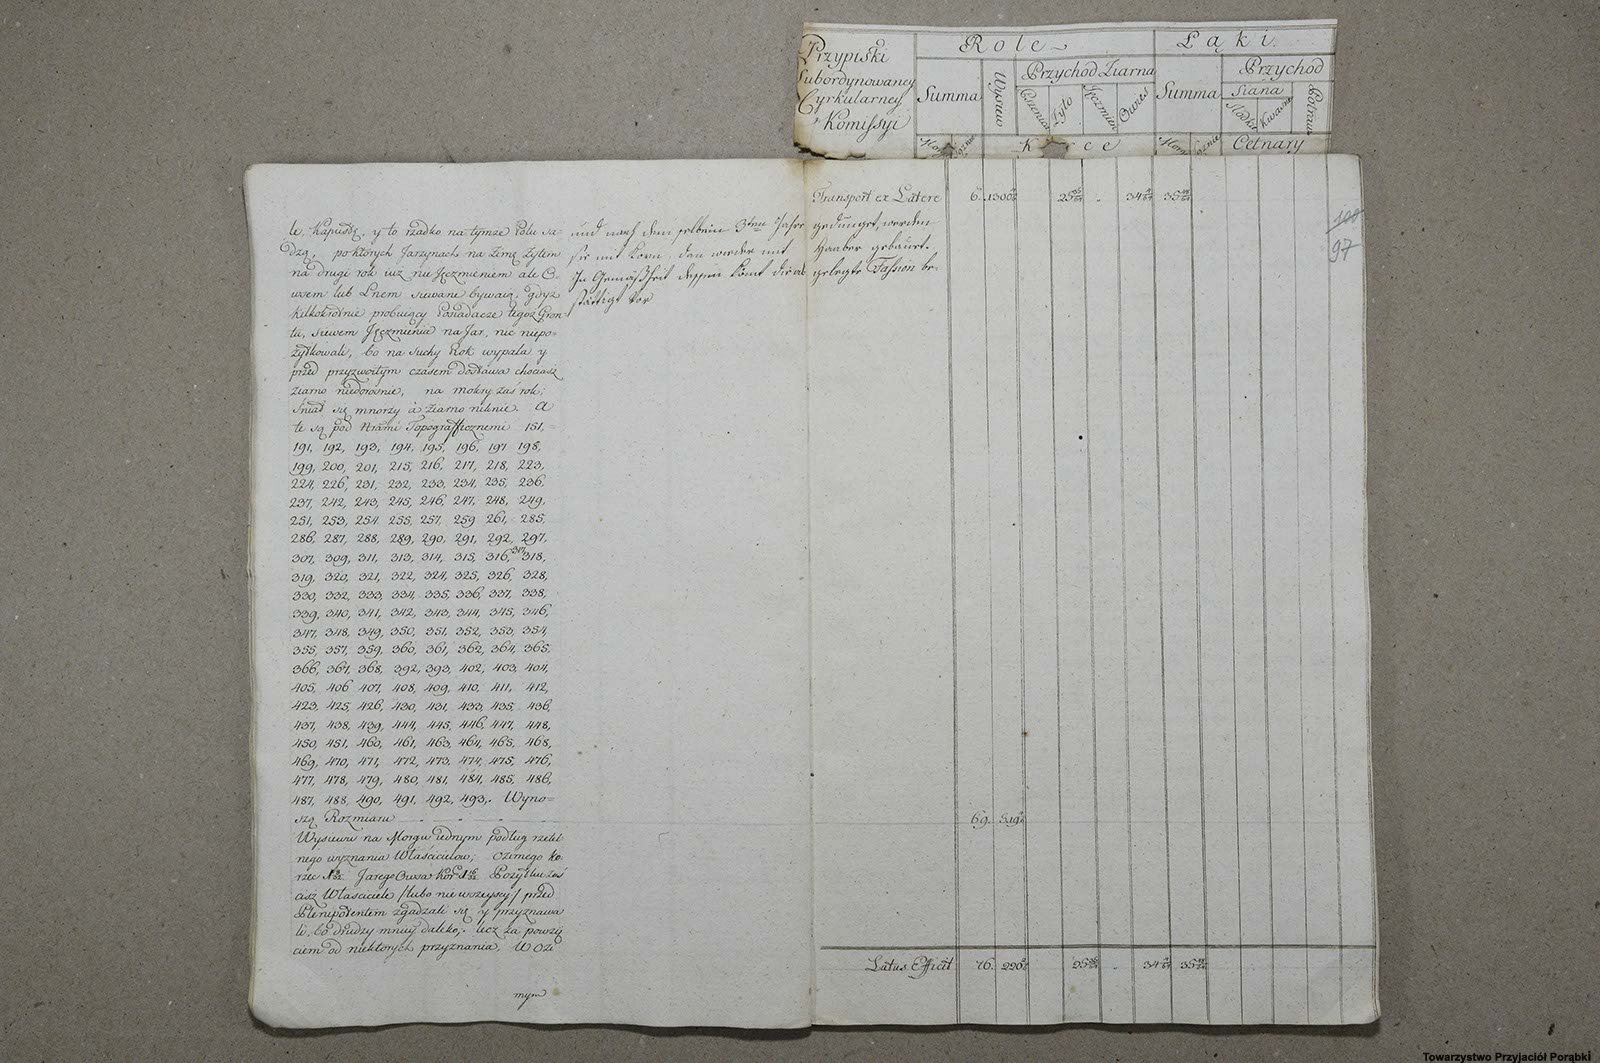 Przypiski
Subordynowaney
Cyrkularney
Komissyi
Role
Łąki
Summa
Wysiew
Przychod Ziarna
Pszenica
Zyto
Jęczmien
Owies
Summa
Przychod
Siana
Słodkie
Kwasne
Potraw
Korce
Cetnary
te, Kapustę, y to rzadko na tymze Polu sa=
dzą, po ktorych Jarzynach na Zimę Zytem
na drugi rok iuz nie Jęczmieniem ale O=
wsem lub Lnem siewane bywaią, gdyz
kilkokrotnie probuiący Posiadacze tegoz Gron=
tu, siewem Jęczmienia na Jar, nic niepo=
zytkowali, bo na suchy Rok wypala y
przed przyzwoitym czasem dostawa chociasz
ziarno niedorosnie, na mokry zas rok,
Sniad się mnozy a ziarno niknie. A
te są pod Nrami Topografficznemi 151,
191, 192, 193, 194, 195, 196, 197 198,
199, 200, 201, 215, 216, 217, 218, 223,
224, 226, 231, 232, 233, 234, 235, 236,
237, 242, 243, 245, 246, 247, 248, 249,
251, 253, 254, 255, 257, 259 261, 285,
286, 287, 288, 289, 290, 291, 292, 297,
307, 309, 311, 313, 314, 315, 316, 317 318,
319, 320, 321, 322, 324, 325, 326, 328,
330, 332, 333, 334, 335, 336, 337, 338,
339, 340, 341, 342, 343, 344, 345, 346,
347, 348, 349, 350, 351, 352, 353, 354,
355, 357, 359, 360, 361, 362, 364, 365,
366, 367, 368, 392, 393, 402, 403, 404,
405, 406 407, 408, 409, 410, 411, 412,
423, 425, 426, 430, 431, 433, 435, 436,
437, 438, 439, 444, 445, 446, 447, 448,
450, 451, 460, 461, 463, 464, 465, 468,
469, 470, 471, 472, 473, 474, 475, 476,
477, 478, 479, 480, 481, 484, 485, 486,
487, 488, 490, 491, 492, 493,. Wyno=
szą Rozmiaru
Wysiewu na Morgu iednym podług rzetel
nego wyznania Włascicielow, Ozimego ko
rzec Jarego Owsa Kor: Pozytku zas
cisz Własciciele /:lubo nie wszyscy:/ przed
Plenipotentem zgadzali się y przyznawa
li, bo drudzy mniey daleko, lecz za powzię
ciem od niektorych przyznania, W Ozi
mym
und nach dem selben 3ten Jahr
sie mit Korn, den wieder mit
In Gemäßheit dessen kömt diese
stättigt vor
Transport ex Latere 6. 1300
gedünget, werden
Haaber gebauet.
gelegte Fassion be=
100
97
69. 519
Latus Efficit 76. 220
Towarzystwo Przyjaciół Porąbki